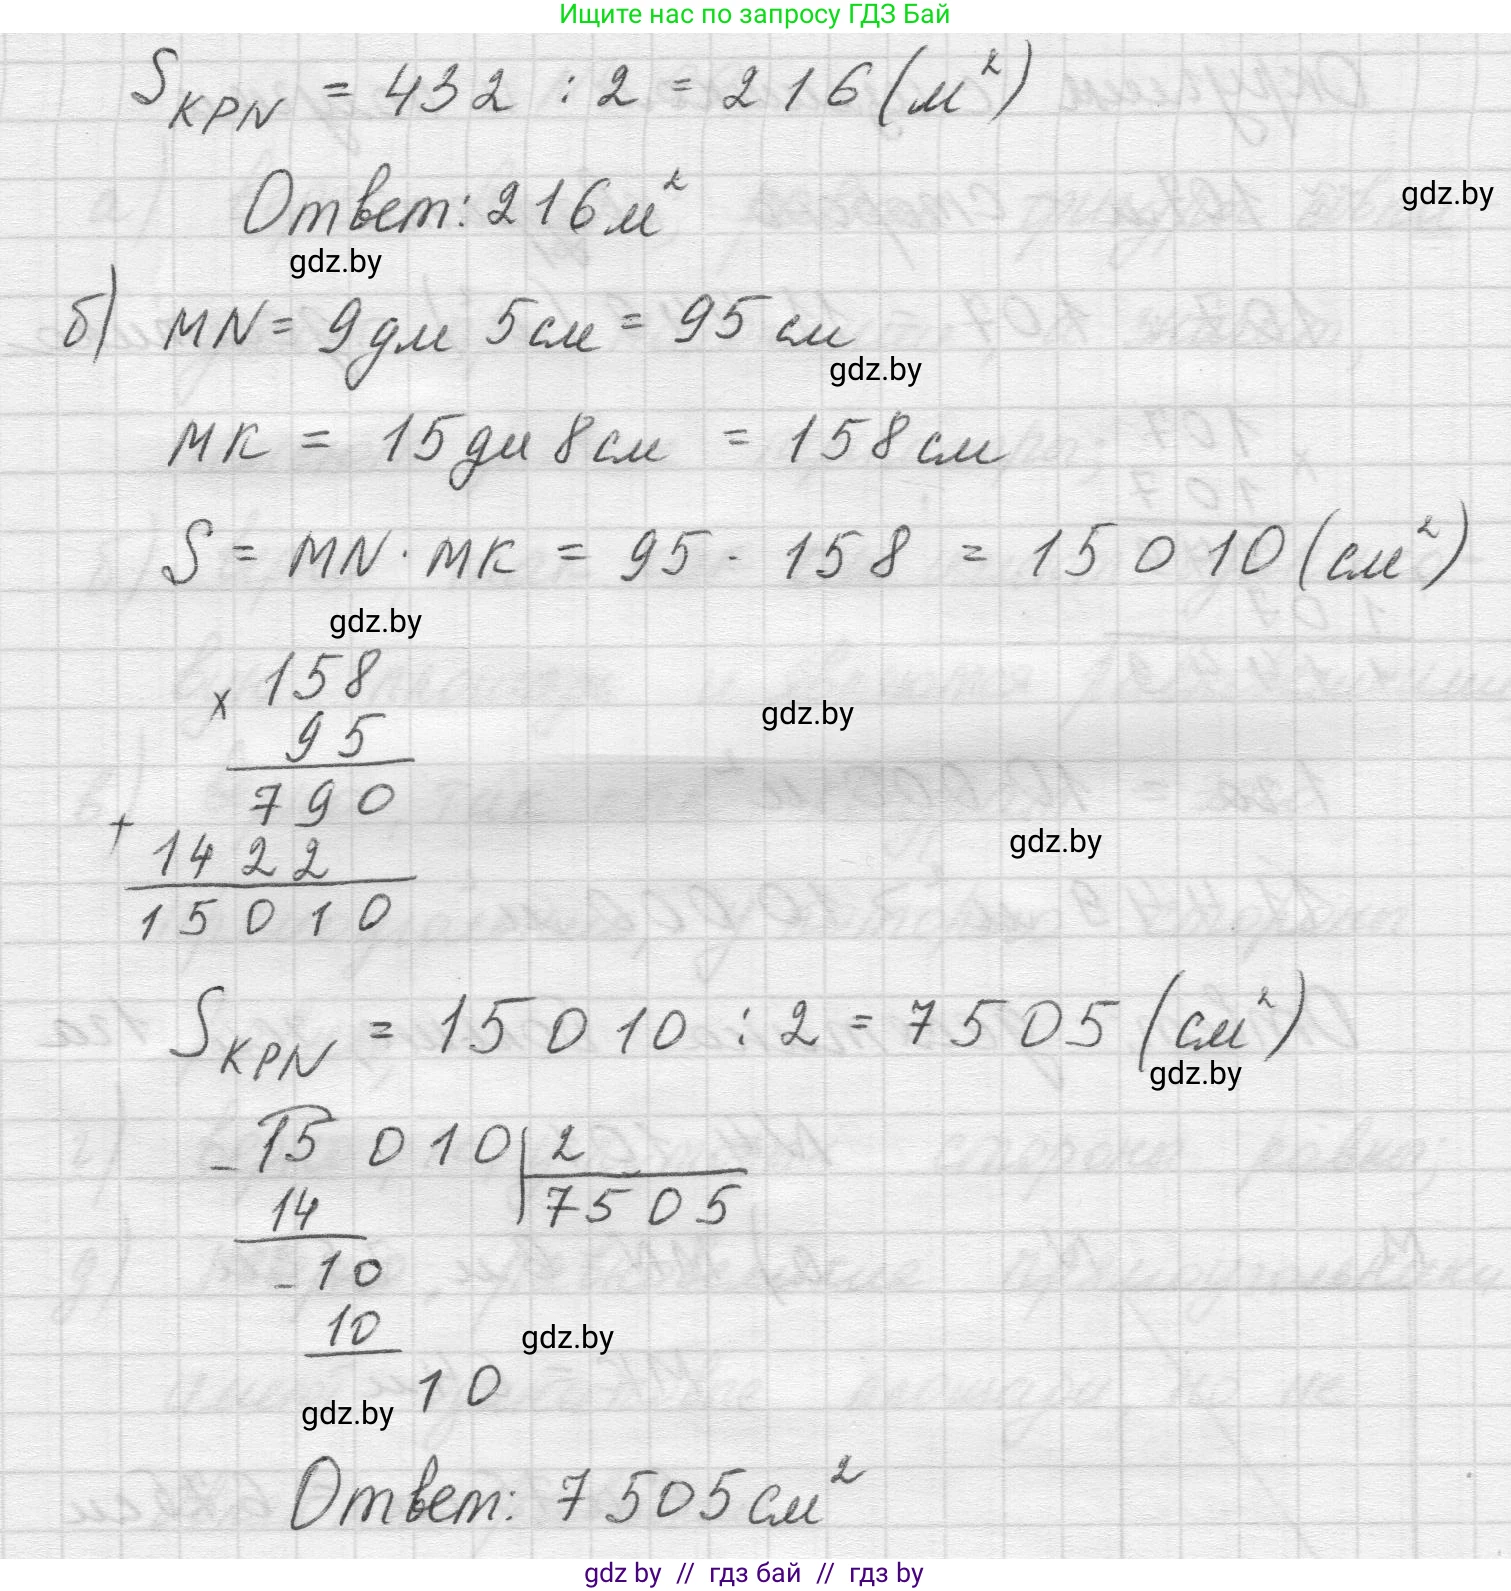 Ищите нас по запросу ГДЗ Бай
S KPN = 432 : 2 = 216 (м²)
Ответ: 216 м²
gdz.by
gdz.by
б) MN = 9 дм 5 см = 95 см
gdz.by
MK = 15 дм 8 см = 158 см
S = MN · MK = 95 · 158 = 15010 (см²)
gdz.by
× 158
95
gdz.by
790
+ 1422
gdz.by
15010
S KPN = 15010 : 2 = 7505 (см²)
gdz.by
- 15010 | 2
14 7505
- 10
10
gdz.by
10
gdz.by
Ответ: 7505 см²
gdz.by // гдз бай // гдз by